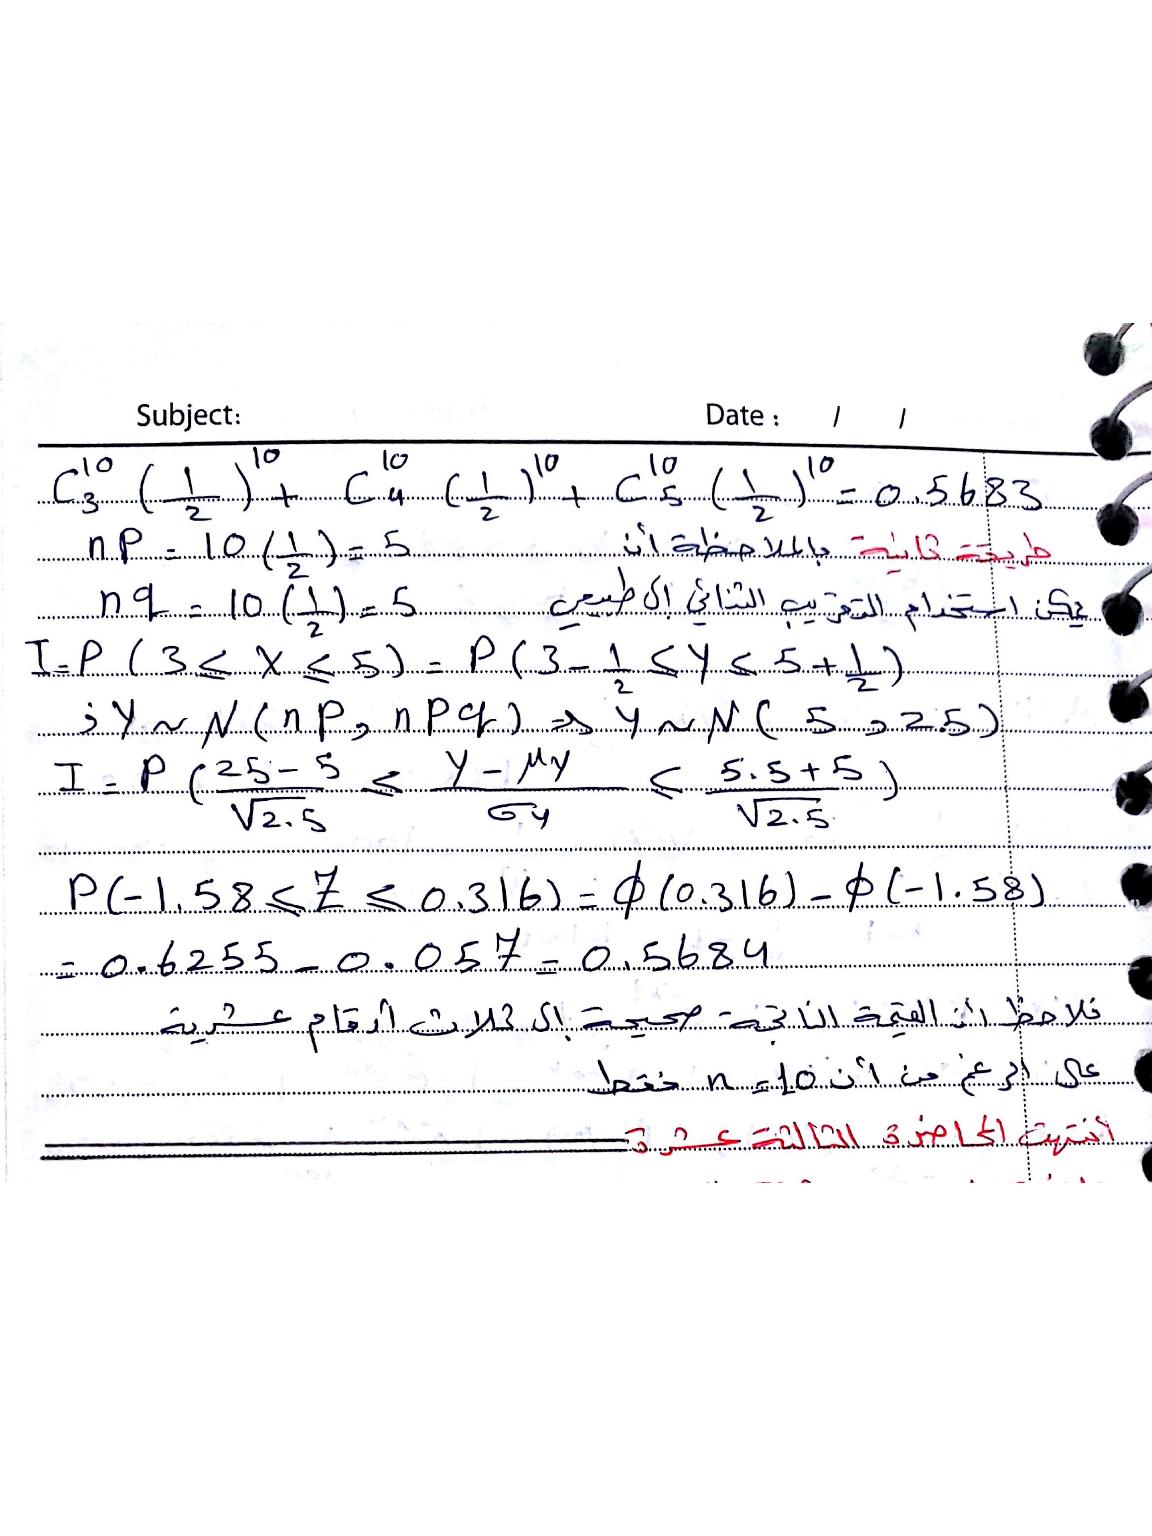 Subject: Date : / /
C₃¹⁰ (1/2)¹⁰ + C₄¹⁰ (1/2)¹⁰ + C₅¹⁰ (1/2)¹⁰ = 0.5683
طريقة ثانية بالملاحظة أن nP = 10 (1/2) = 5
يمكن استخدام التقريب الثنائي إلى طبيعي nq = 10 (1/2) = 5
I = P (3 ≤ X ≤ 5) = P (3 - 1/2 ≤ Y ≤ 5 + 1/2)
; Y ~ N (nP, nPq) => Y ~ N (5, 2.5)
I = P (25 - 5 / √2.5 ≤ Y - μy / σy ≤ 5.5 + 5 / √2.5)
P(-1.58 ≤ Z ≤ 0.316) = φ (0.316) - φ (-1.58)
= 0.6255 - 0.057 = 0.5684
نلاحظ أن القيمة الناتجة صحيحة إلى ثلاث أرقام عشرية
على الرغم من أن n = 10 فقط
انتهت المحاضرة الثالثة عشرة